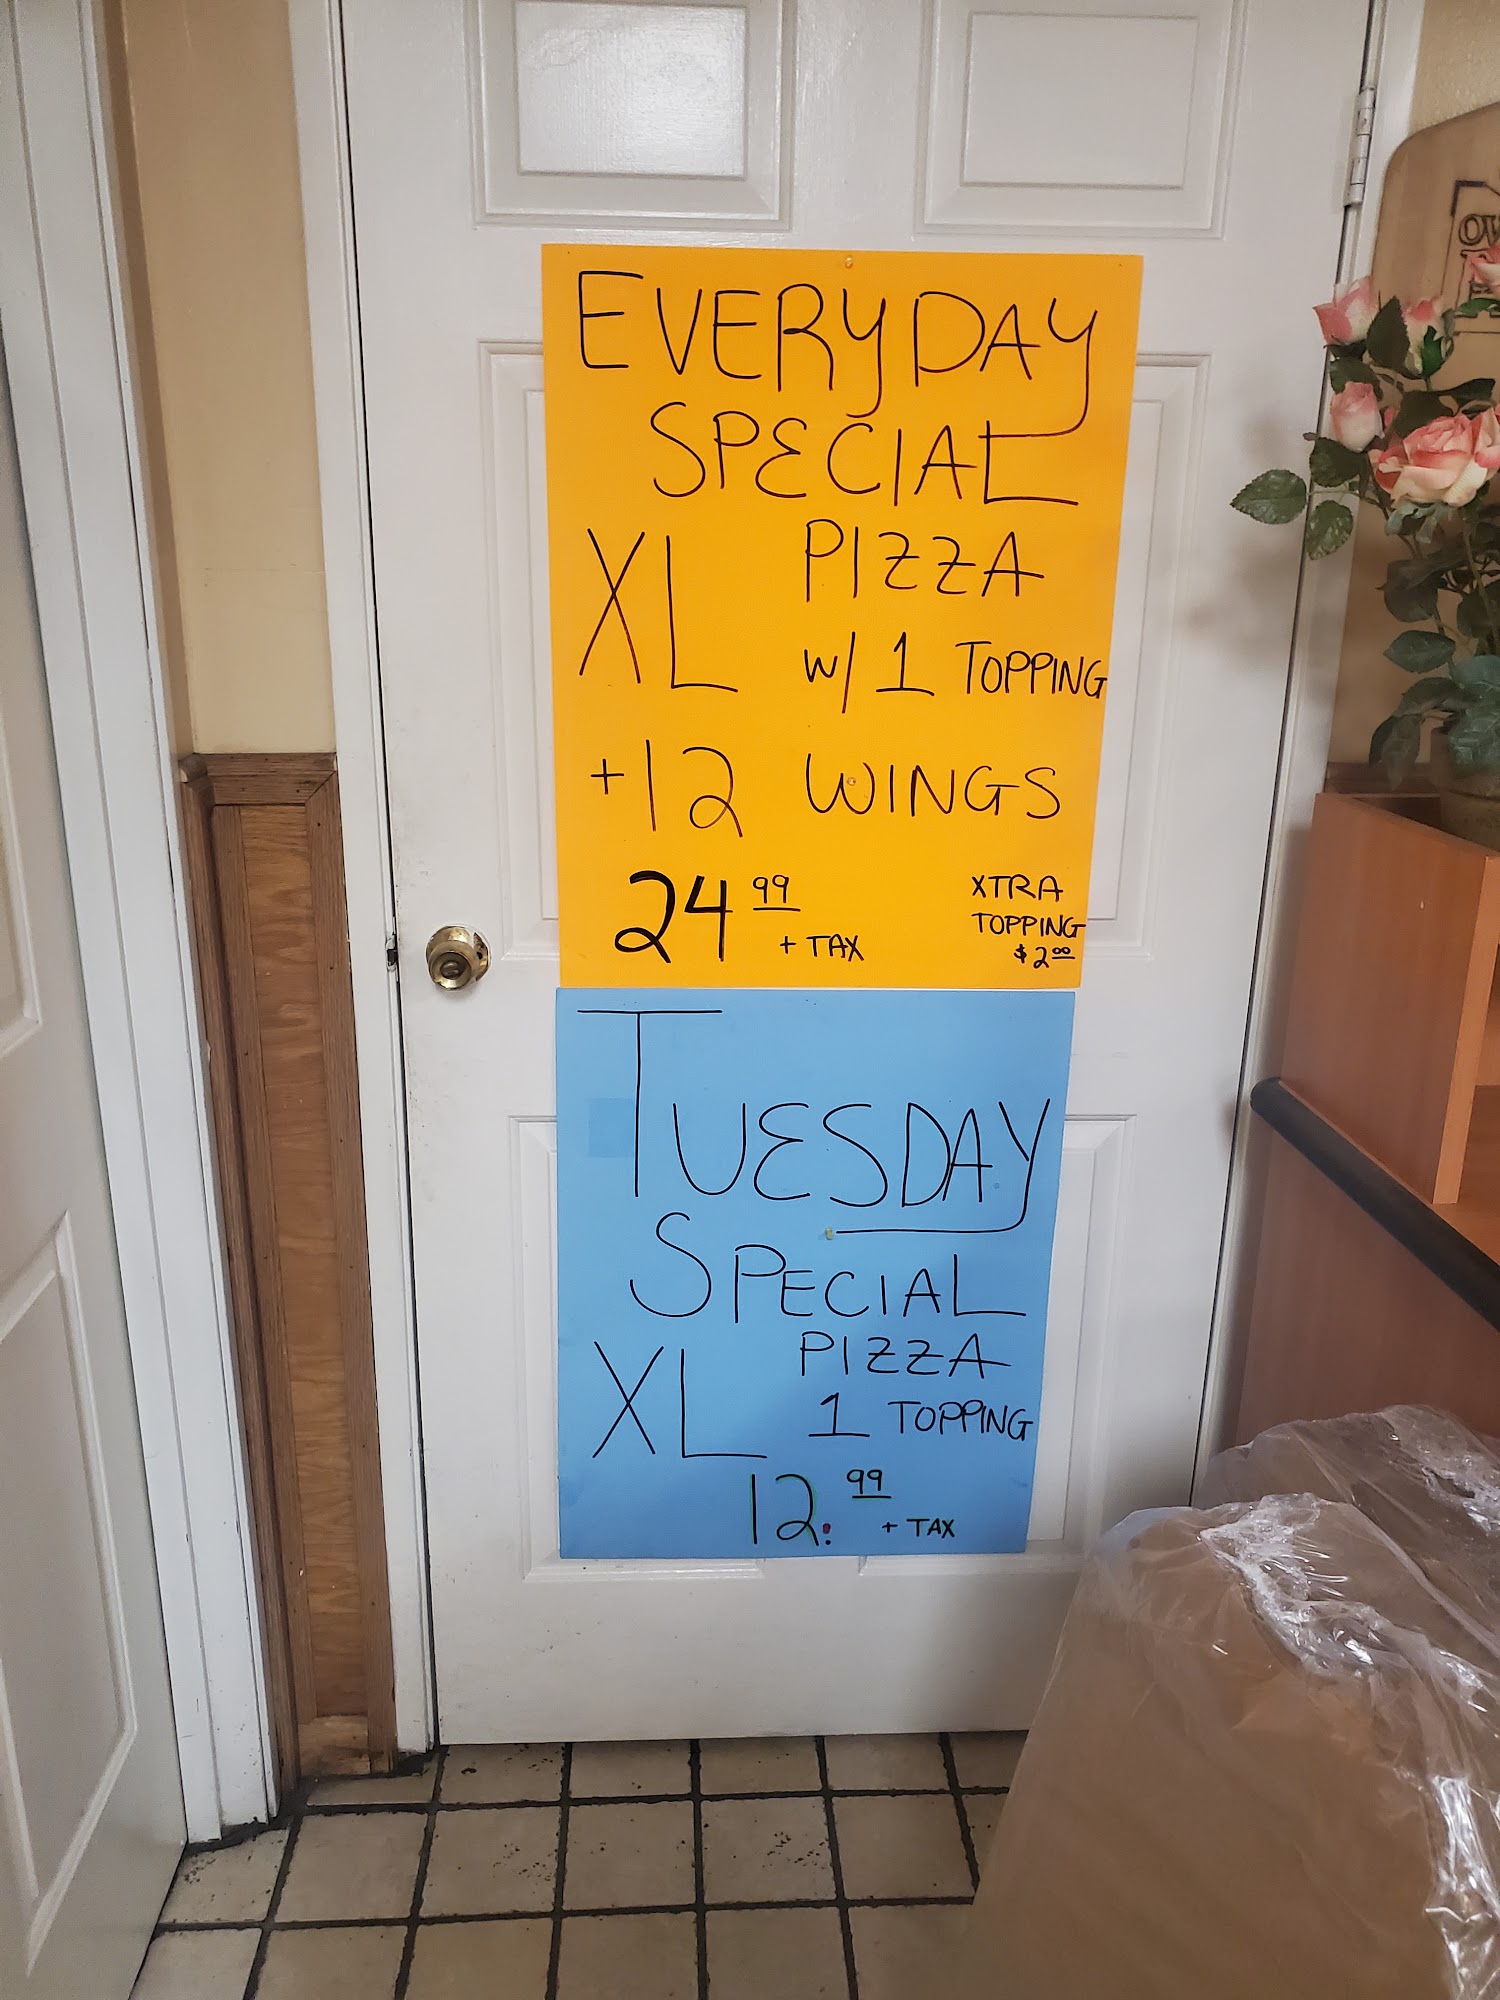 EVERYDAY
SPECIAL
XL PIZZA
w/ 1 TOPPING
+12 WINGS
24 99
+ TAX
XTRA
TOPPING
$2 00
TUESDAY
SPECIAL
XL PIZZA
1 TOPPING
12. 99
+ TAX